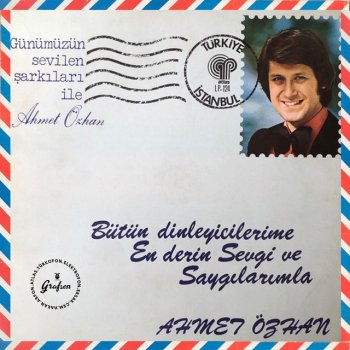 Günümüzün
sevilen
şarkıları
ile
Ahmet Özhan
TÜRKİYE
LP-124
İSTANBUL
Bütün dinleyicilerime
En derin Sevgi ve
Saygılarımla
AHMET ÖZHAN
Grafson